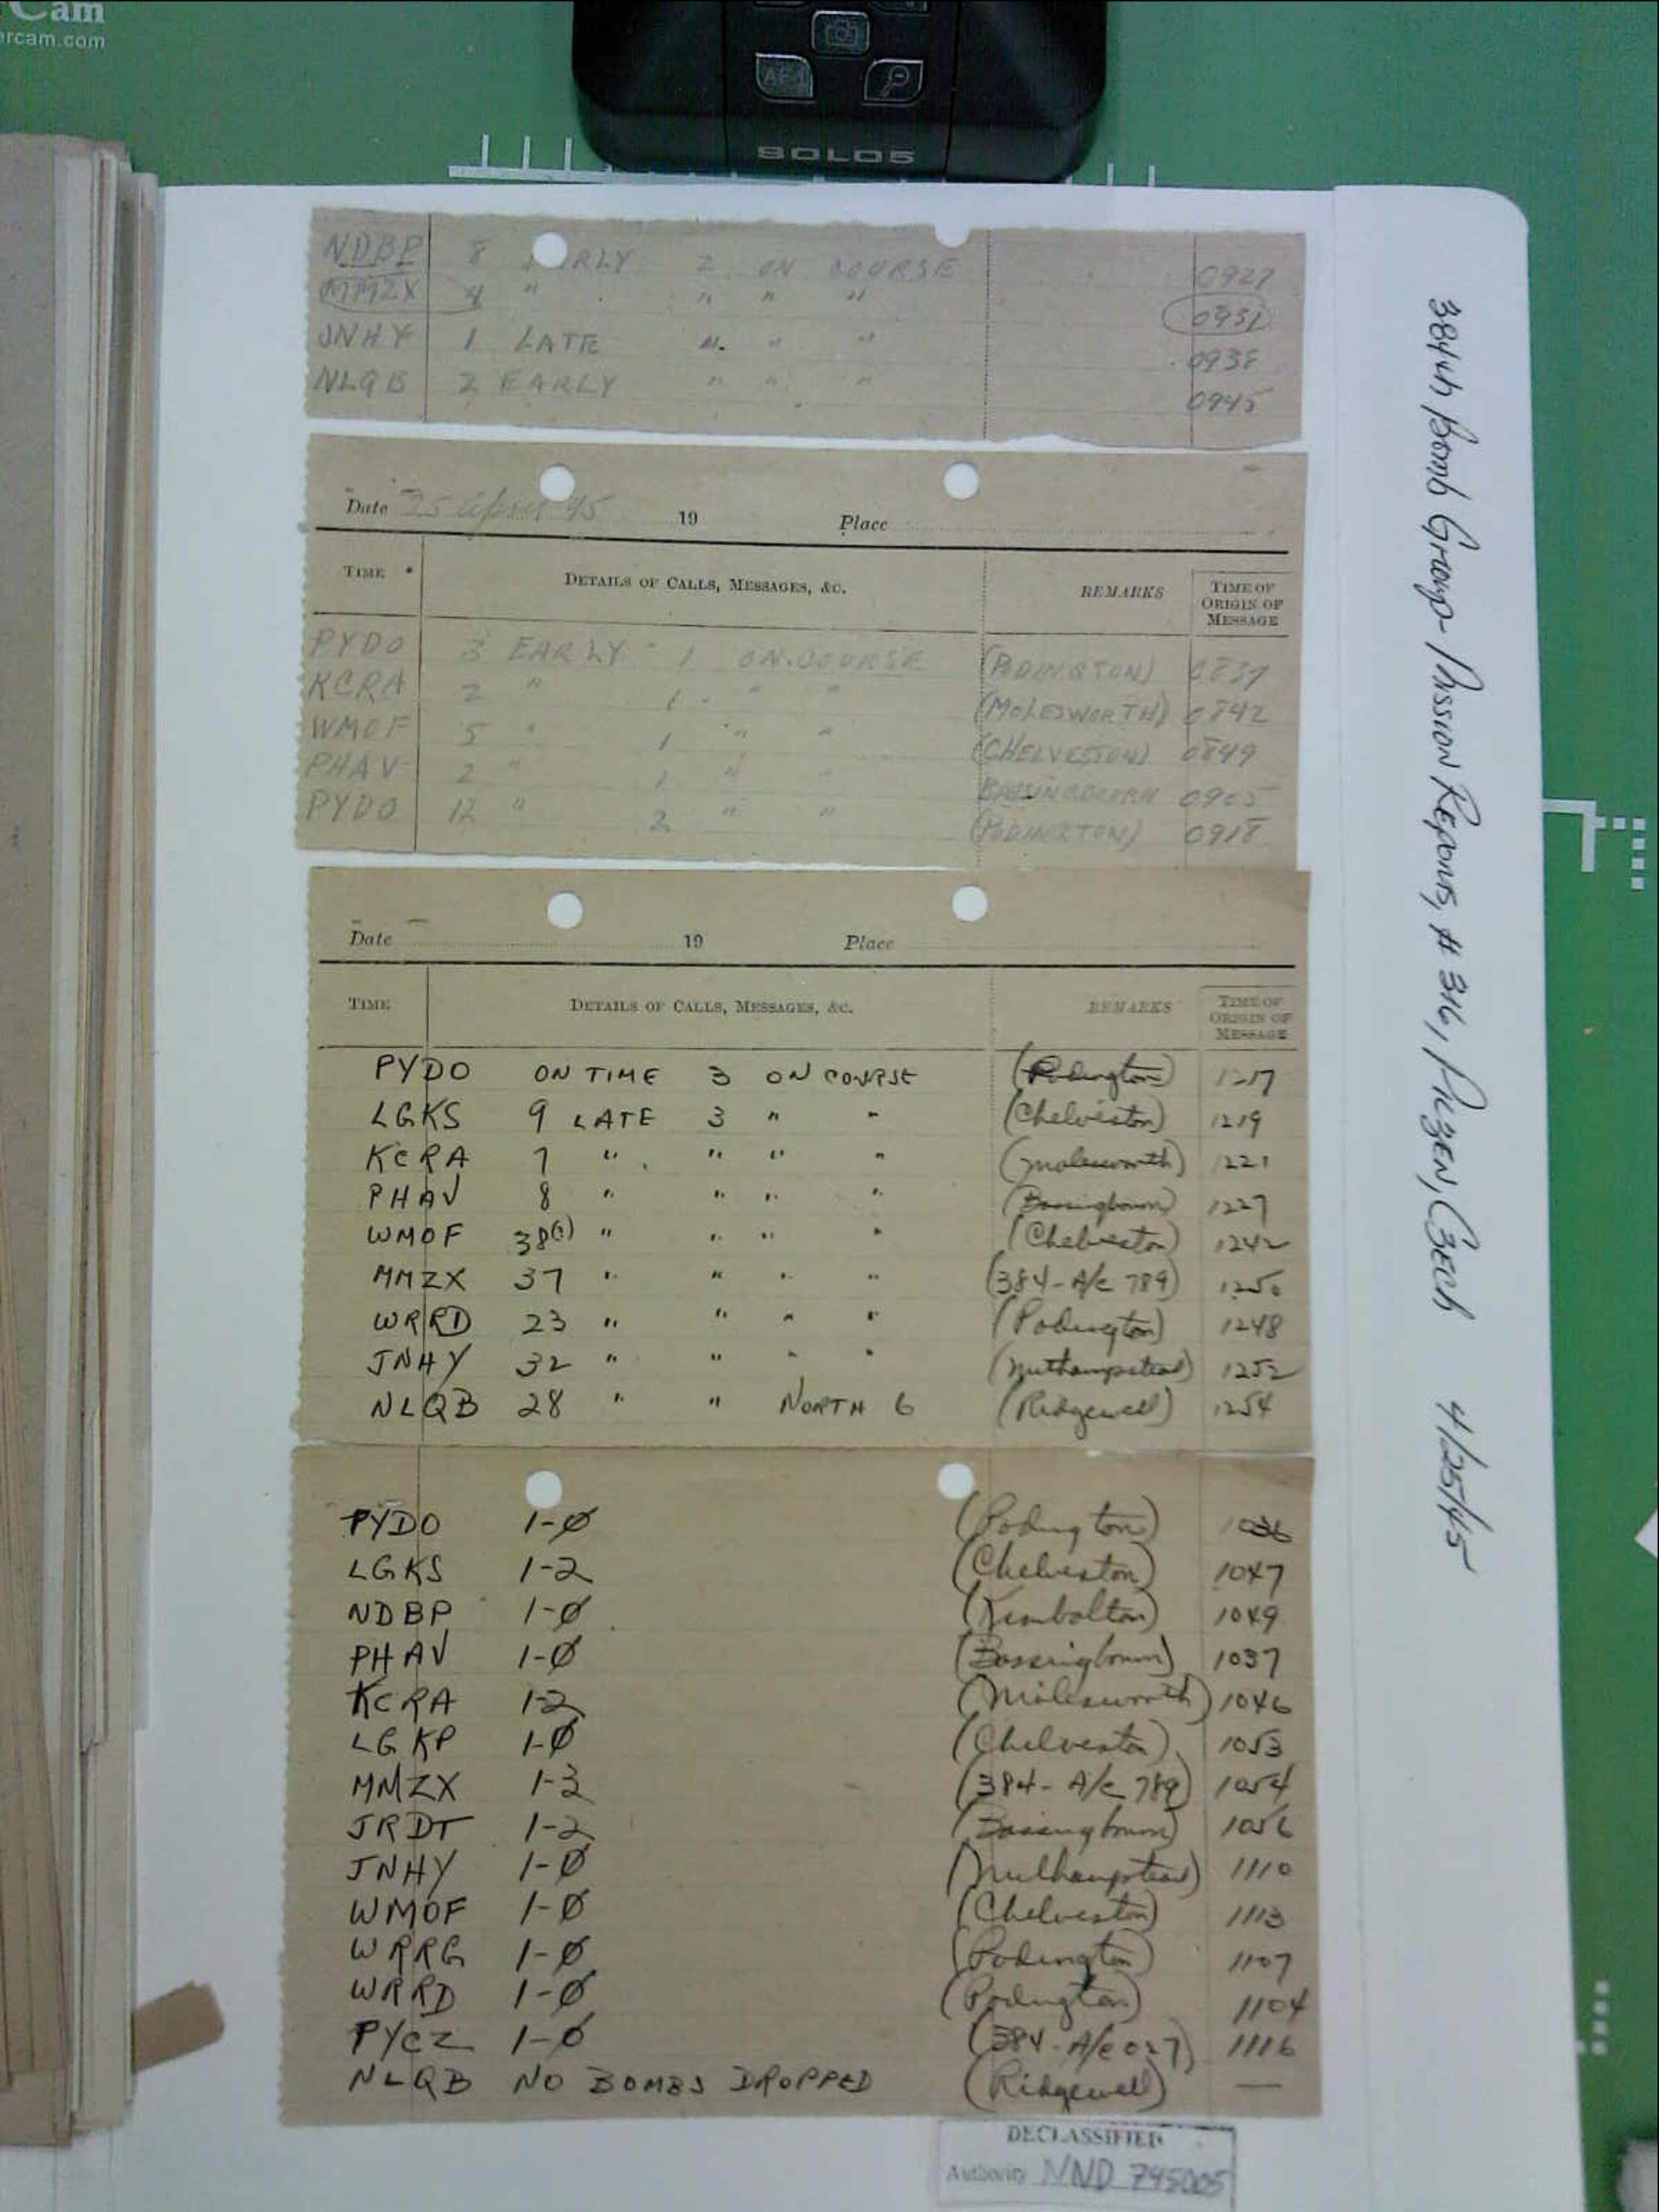 Cam
rcam.com
SOLO5
NDBP 8 RLY 2 ON COURSE 0927
MMZX 4 " " " " 0931
JNHY 1 LATE " " " 0938
NLQB 2 EARLY " " " 0945
Date 25 April 45 19 Place
TIME DETAILS OF CALLS, MESSAGES, &C. REMARKS TIME OF ORIGIN OF MESSAGE
PYDO 3 EARLY 1 ON COURSE (PODINGTON) 0839
KCRA 2 " 1 " " (MOLESWORTH) 0842
WMOF 5 " 1 " " (CHELVESTON) 0849
PHAV 2 " 1 " " BASSINGBOURN 0905
PYDO 12 " 2 " " (PODINGTON) 0918
Date 19 Place
TIME DETAILS OF CALLS, MESSAGES, &C. REMARKS TIME OF ORIGIN OF MESSAGE
PYDO ON TIME 3 ON COURSE (Podington) 1217
LGKS 9 LATE 3 " " (Chelveston) 1219
KCRA 7 " " " " (Molesworth) 1221
PHAV 8 " " " " (Bassingbourn) 1227
WMOF 38 " " " " (Chelveston) 1242
MMZX 37 " " " " (384-A/c 789) 1250
WRRD 23 " " " " (Podington) 1248
JNHY 32 " " " " (Nuthampstead) 1252
NLQB 28 " " NORTH 6 (Ridgewell) 1254
PYDO 1-Ø (Podington) 1036
LGKS 1-2 (Chelveston) 1047
NDBP 1-Ø (Kimbolton) 1049
PHAV 1-Ø (Bassingbourn) 1037
KCRA 1-2 (Molesworth) 1046
LGKP 1-Ø (Chelveston) 1053
MMZX 1-3 (384-A/c 789) 1054
JRDT 1-2 (Bassingbourn) 1056
JNHY 1-Ø (Nuthampstead) 1110
WMOF 1-Ø (Chelveston) 1113
WRRG 1-Ø (Podington) 1107
WRRD 1-Ø (Podington) 1104
PYCZ 1-Ø (384-A/c 027) 1116
NLQB NO BOMBS DROPPED (Ridgewell) —
DECLASSIFIED
Authority NND 745005
384th Bomb Group- Mission Reports, # 316, Pilzen, Czech 4/25/45